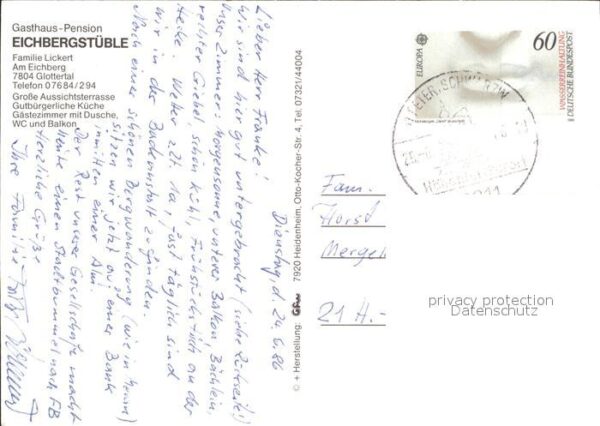 Gasthaus-Pension
EICHBERGSTÜBLE
Familie Lickert
Am Eichberg
7804 Glottertal
Telefon 07684/294
Große Aussichtsterrasse
Gutbürgerliche Küche
Gästezimmer mit Dusche,
WC und Balkon
Dienstag, d. 24.6.86
Lieber Herr Franke!
Wir sind hier gut untergebracht (siehe Rückseite!)
Unser Zimmer: Morgensonne, unterer Balkon, Bächlein,
rechter Giebel, schön kühl, Frühstückstisch an der
Hecke. Wetter z.Zt. 1a, fast täglich sind
wir in der Badeanstalt zu finden.
Nach einer schönen Bergwanderung (wie in
sitzen wir jetzt auf einer Bank
inmitten einer Alm.
Der Rest unserer Gesellschaft macht
heute einen Stadtbummel nach FB
Herzliche Grüße
Ihre Familie
© + Herstellung: 7920 Heidenheim, Otto-Kocher-Str. 4, Tel. 07321/44004
EUROPA
60
WASSERREINHALTUNG
DEUTSCHE BUNDESPOST
Fam.
Horst
Mergel
21 H.-
privacy protection
Datenschutz